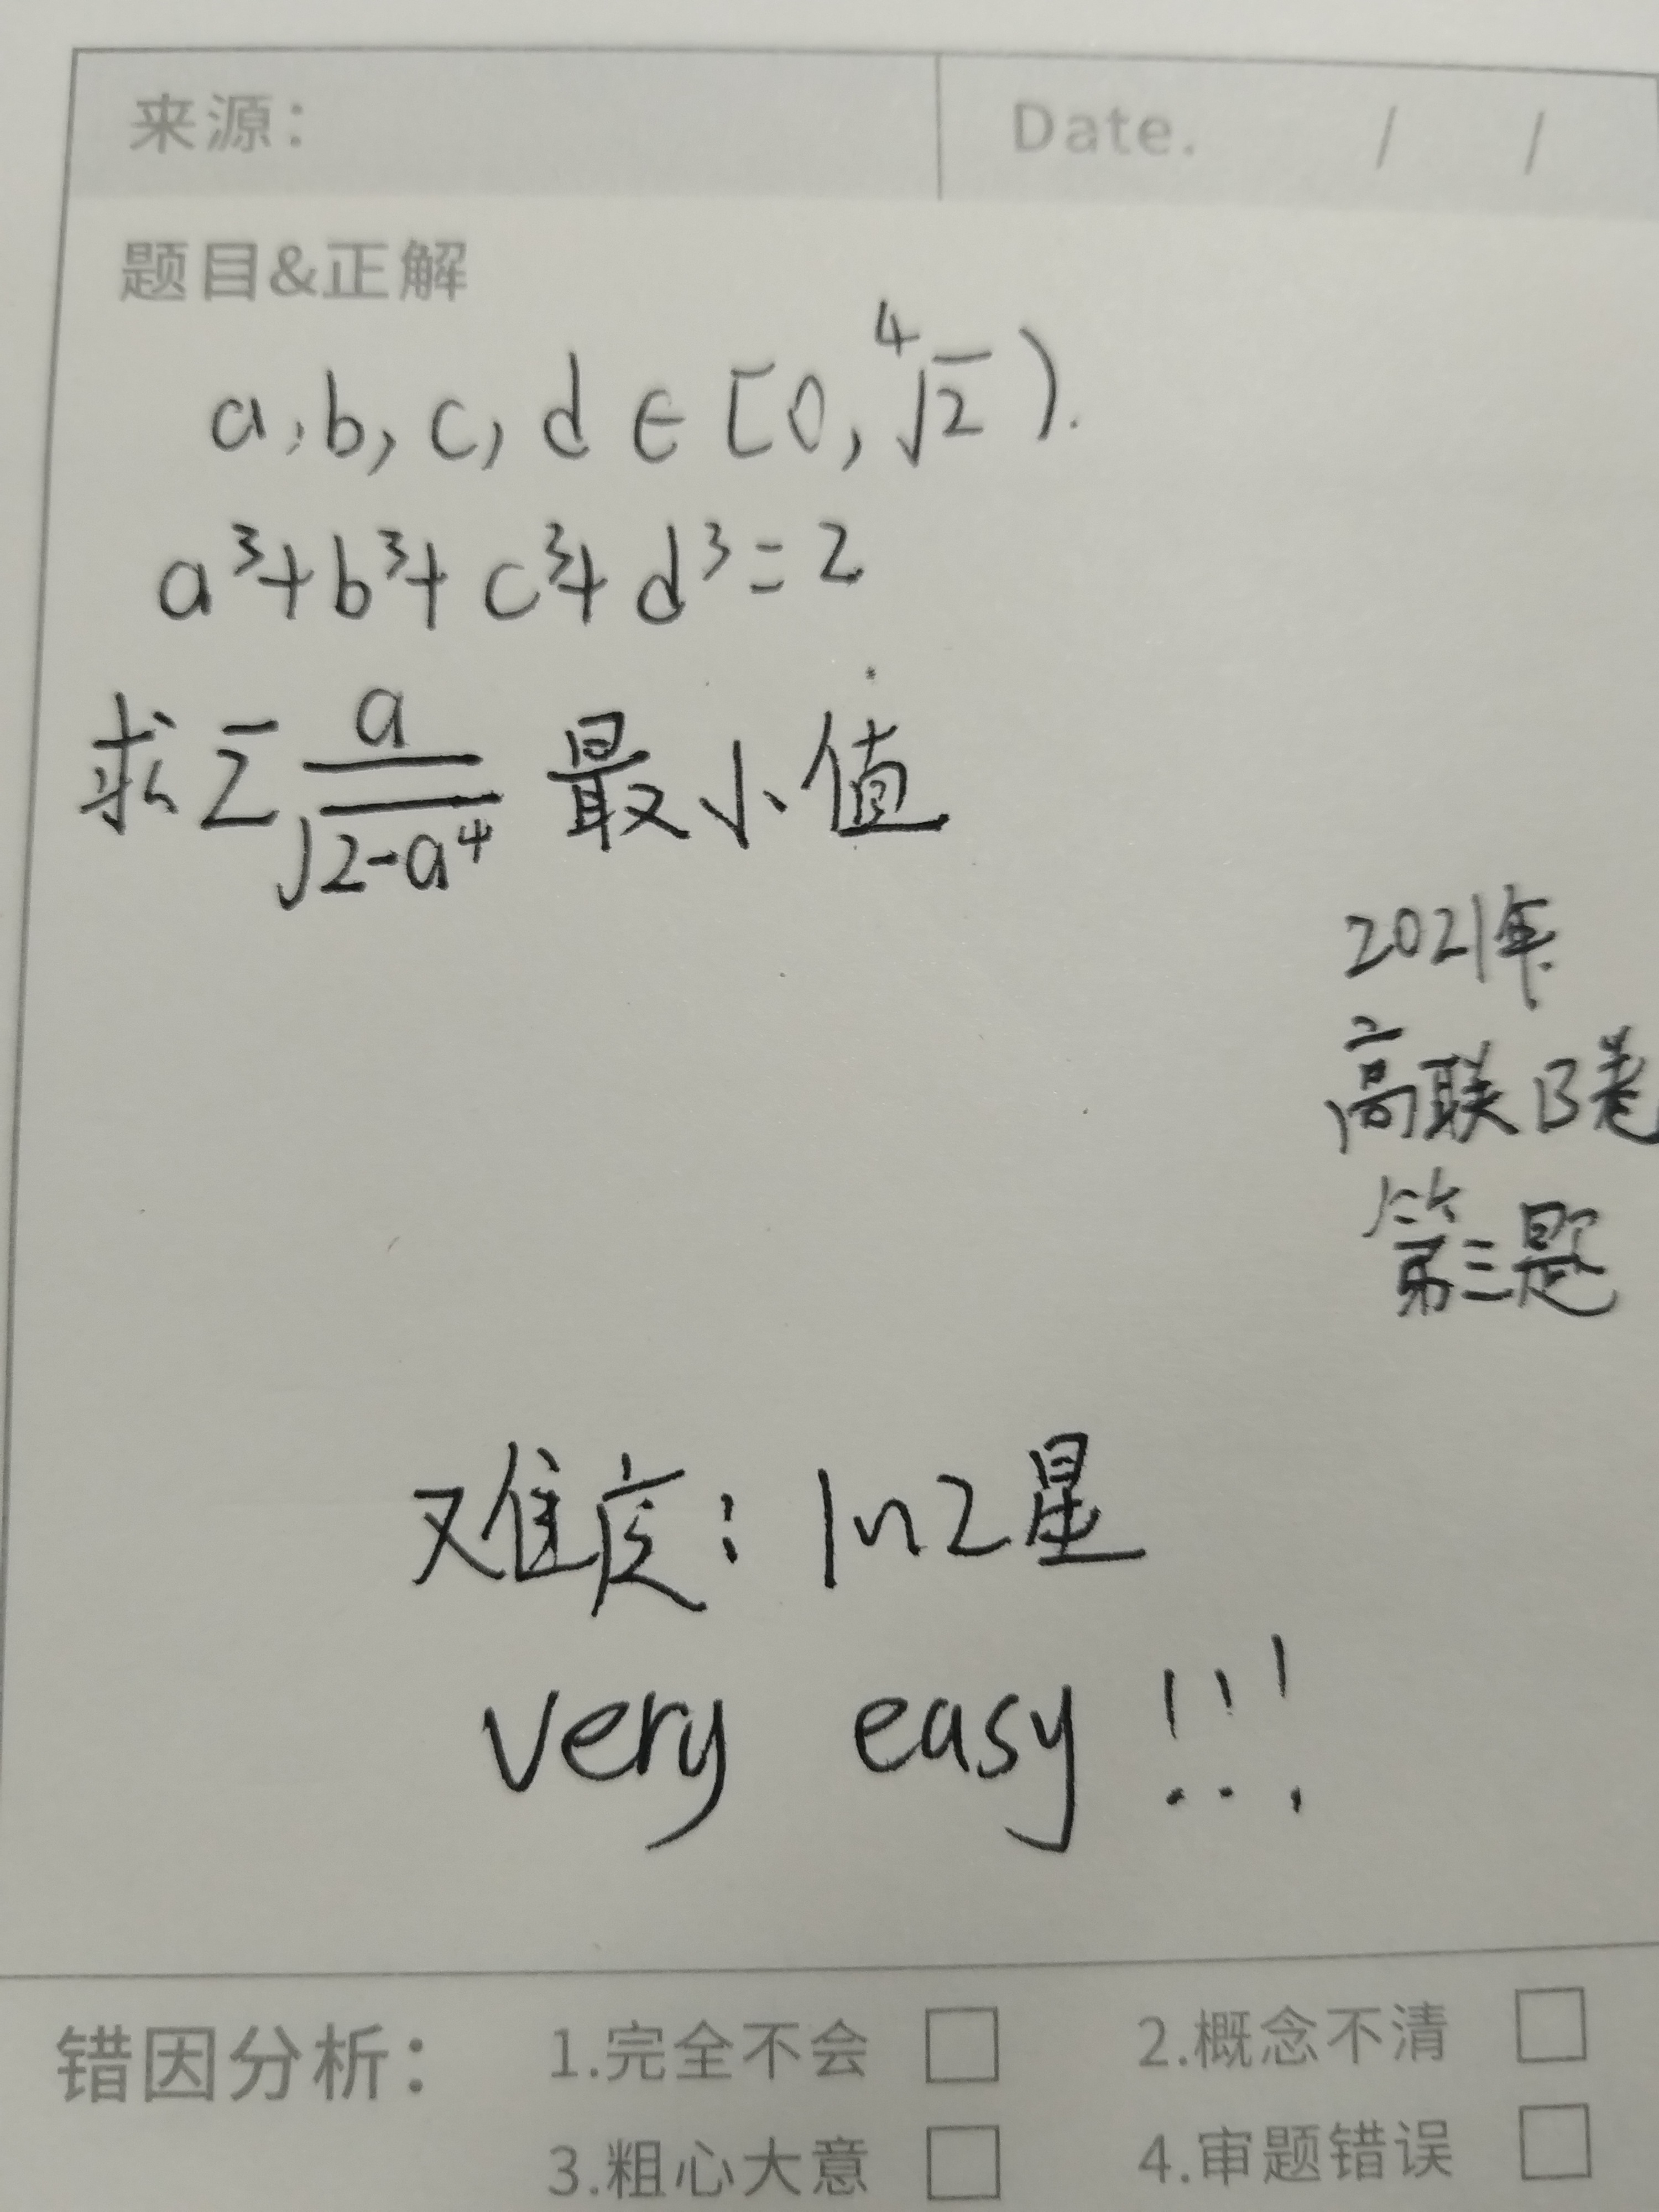 来源： Date. / /
题目&正解
a,b,c,d∈[0,⁴√2).
a³+b³+c³+d³=2
求∑a/√(2-a⁴) 最小值
2021年
高联B卷
第三题
难度：ln2星
very easy!!!
错因分析： 1.完全不会 □ 2.概念不清 □
3.粗心大意 □ 4.审题错误 □